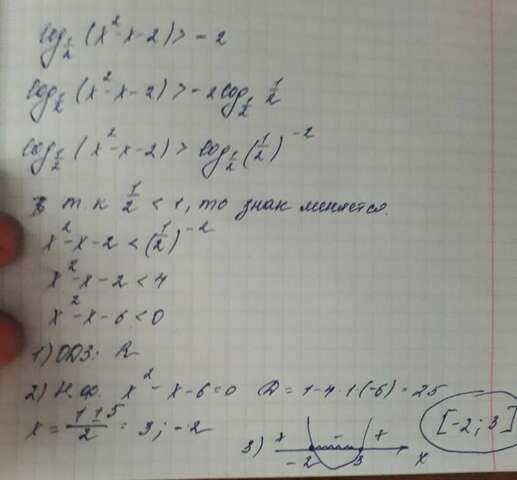 log_{1/2} (x² - x - 2) > -2
log_{1/2} (x² - x - 2) > -2 log_{1/2} 1/2
log_{1/2} (x² - x - 2) > log_{1/2} (1/2)^{-2}
т. к 1/2 < 1, то знак меняется.
x² - x - 2 < (1/2)^{-2}
x² - x - 2 < 4
x² - x - 6 < 0
1) ОДЗ: R
2) Н. ф. x² - x - 6 = 0 D = 1 - 4 · 1 (-6) = 25
x = (1 ± 5)/2 = 3; -2
3) + - + -2 3 x
[-2; 3]